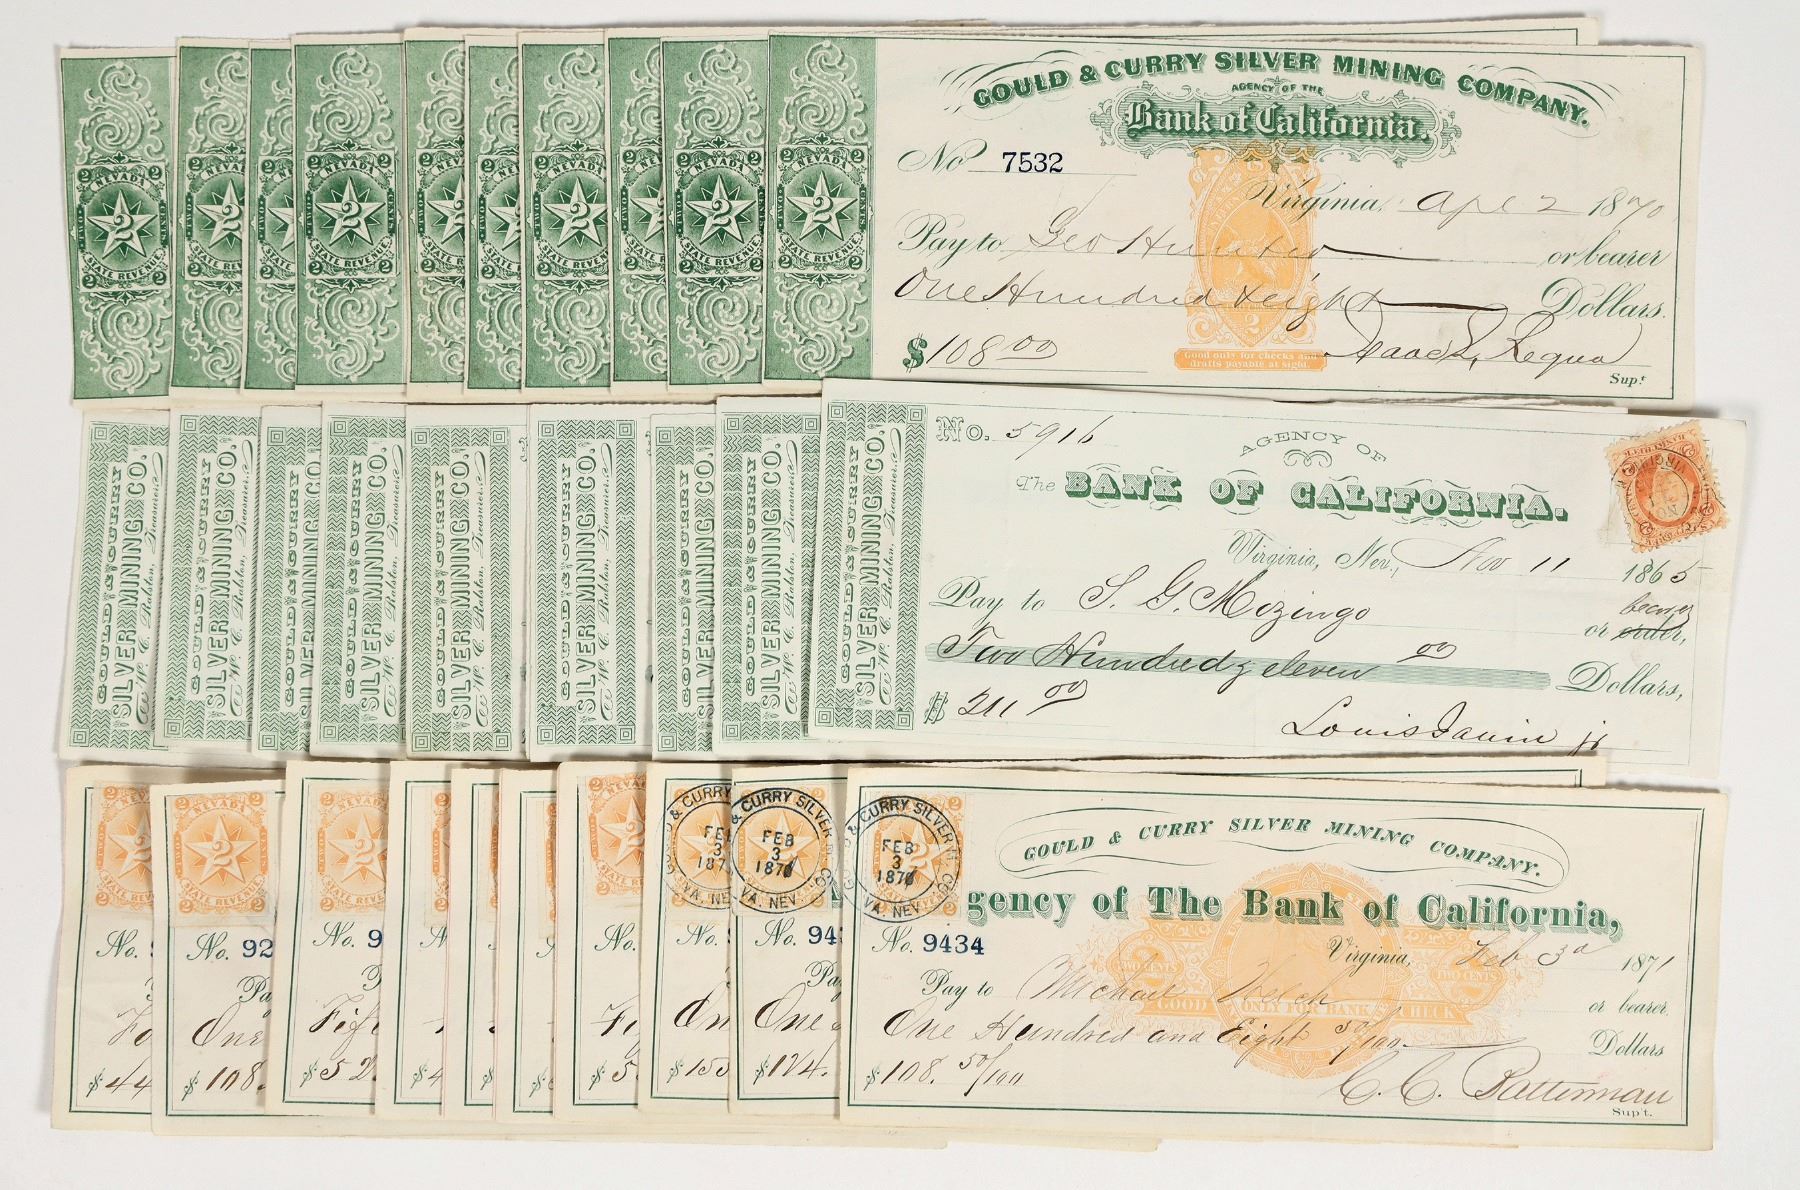 GOULD & CURRY SILVER MINING COMPANY.
AGENCY OF THE
Bank of California.
No 7532
Virginia, Apl 2 1870
Pay to Geo Hunter or bearer
One Hundred & eight Dollars.
$108 00
Good only for checks and
drafts payable at sight.
Isaac L. Requa
Supt
2 NEVADA 2
TWO 2 CENTS
STATE REVENUE
2 2
GOULD & CURRY
SILVER MINING CO.
W. C. Ralston, Treasurer
No. 5916
AGENCY OF
The BANK OF CALIFORNIA.
Virginia, Nev., Nov 11 1865
Pay to S. G. Mozingo
bearer
or order,
Two Hundred & eleven 00 Dollars,
$ 211 00
Louis Janin jr
2 NEVADA 2
TWO 2 CENTS
STATE REVENUE
No. 92
Pay
One
$108.
No. 9
Fift
$52
$44
No. 94
One
$124.
& CURRY SILVER M
FEB
3
1871
CO.
VA. NEV.
GOULD & CURRY SILVER MINING COMPANY.
gency of The Bank of California,
No. 9434
Virginia, Feb 3d 1871
Pay to Michael Welch or bearer
TWO CENTS TWO CENTS
GOOD ONLY FOR BANK CHECK
One Hundred and Eight 50/100 Dollars
$108. 50/100
C. C. Batterman
Sup't.